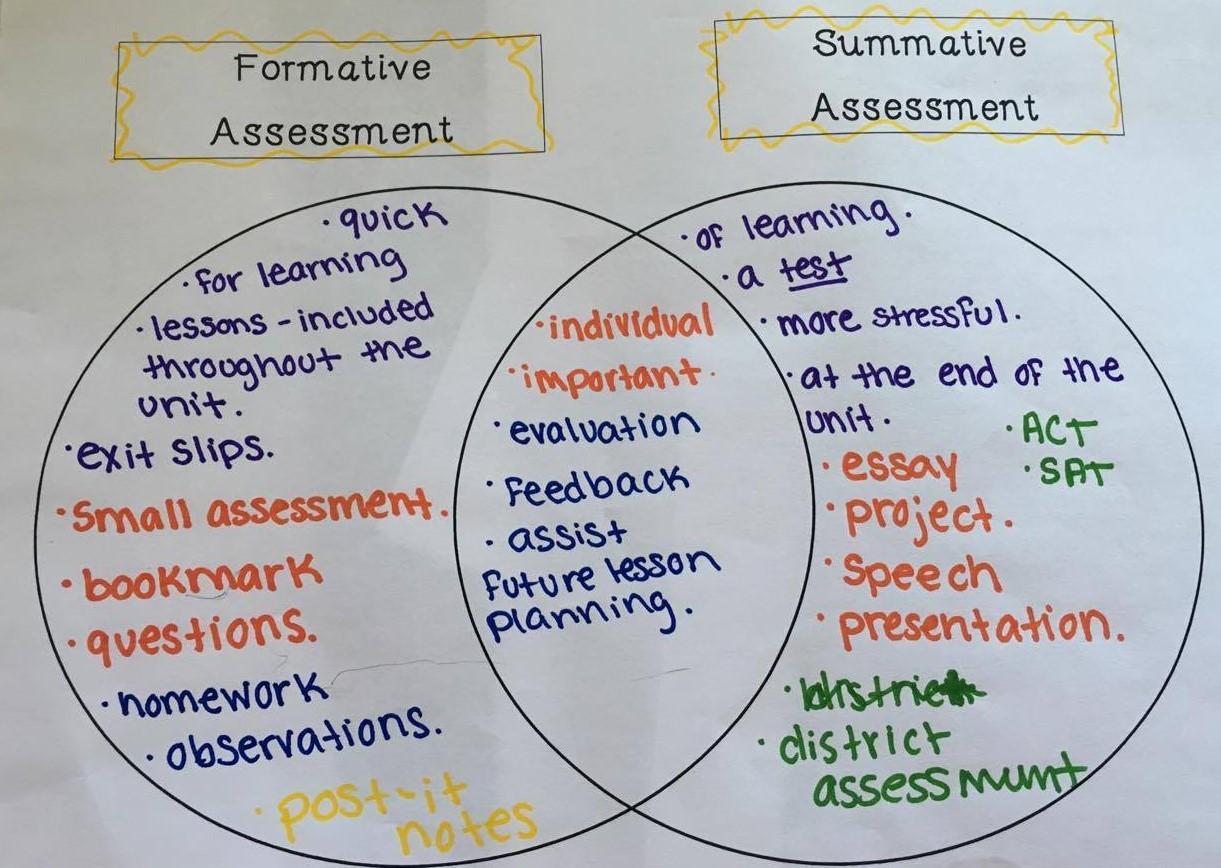 Formative
Assessment
· quick
· for learning
· lessons - included
throughout the
unit.
· exit slips.
· Small assessment.
· bookmark
· questions.
· homework
· observations.
· post-it
notes
· individual
· important.
· evaluation
· Feedback
· assist
future lesson
planning.
Summative
Assessment
· of learning.
· a test
· more stressful.
· at the end of the
unit.
· ACT
· SAT
· essay
· project.
· Speech
· presentation.
· district
assessmumt